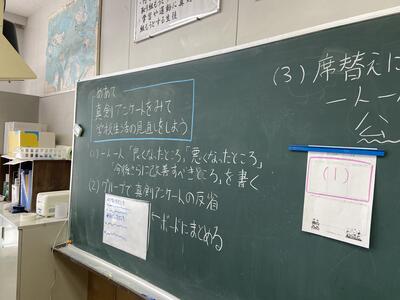 学習や運動に真剣
めあて
真剣アンケートをみて
学校生活の見直しをしよう
(1) 一人一人「良くなったところ」「悪くなったところ」
「今後さらに改善すべきところ」を書く
(2) グループで真剣アンケートの反省
←ボードにまとめる
(3) 席替えに
一人一人
公
(1)